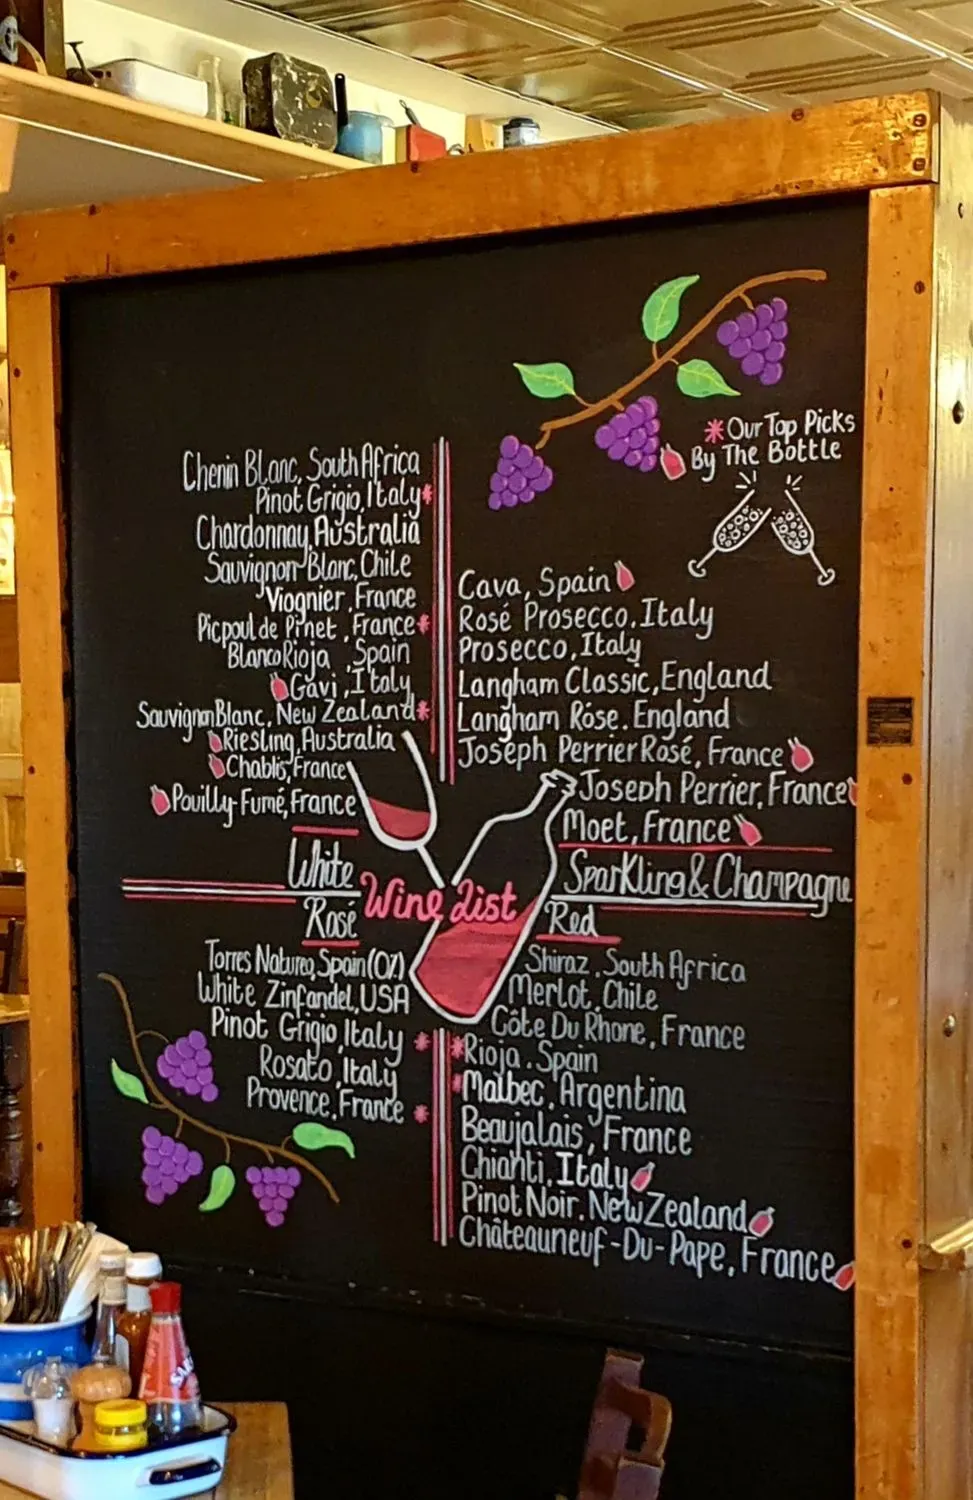 *Our Top Picks
By The Bottle
Chenin Blanc, South Africa
Pinot Grigio, Italy*
Chardonnay, Australia
Sauvignon Blanc, Chile
Viognier, France
Picpoul de Pinet, France*
Blanco Rioja, Spain
Gavi, Italy
Sauvignon Blanc, New Zealand*
Riesling, Australia
Chablis, France
Pouilly-Fumé, France
White
Cava, Spain
Rosé Prosecco, Italy
Prosecco, Italy
Langham Classic, England
Langham Rose. England
Joseph Perrier Rosé, France
Joseph Perrier, France
Moet, France
Sparkling & Champagne
Wine List
Rosé
Torres Natureo, Spain (0%)
White Zinfandel, USA
Pinot Grigio, Italy *
Rosato, Italy
Provence, France *
Red
Shiraz, South Africa
Merlot, Chile
Côte Du Rhone, France
*Rioja. Spain
*Malbec, Argentina
Beaujalais, France
Chianti, Italy
Pinot Noir. New Zealand
Châteauneuf-Du-Pape, France